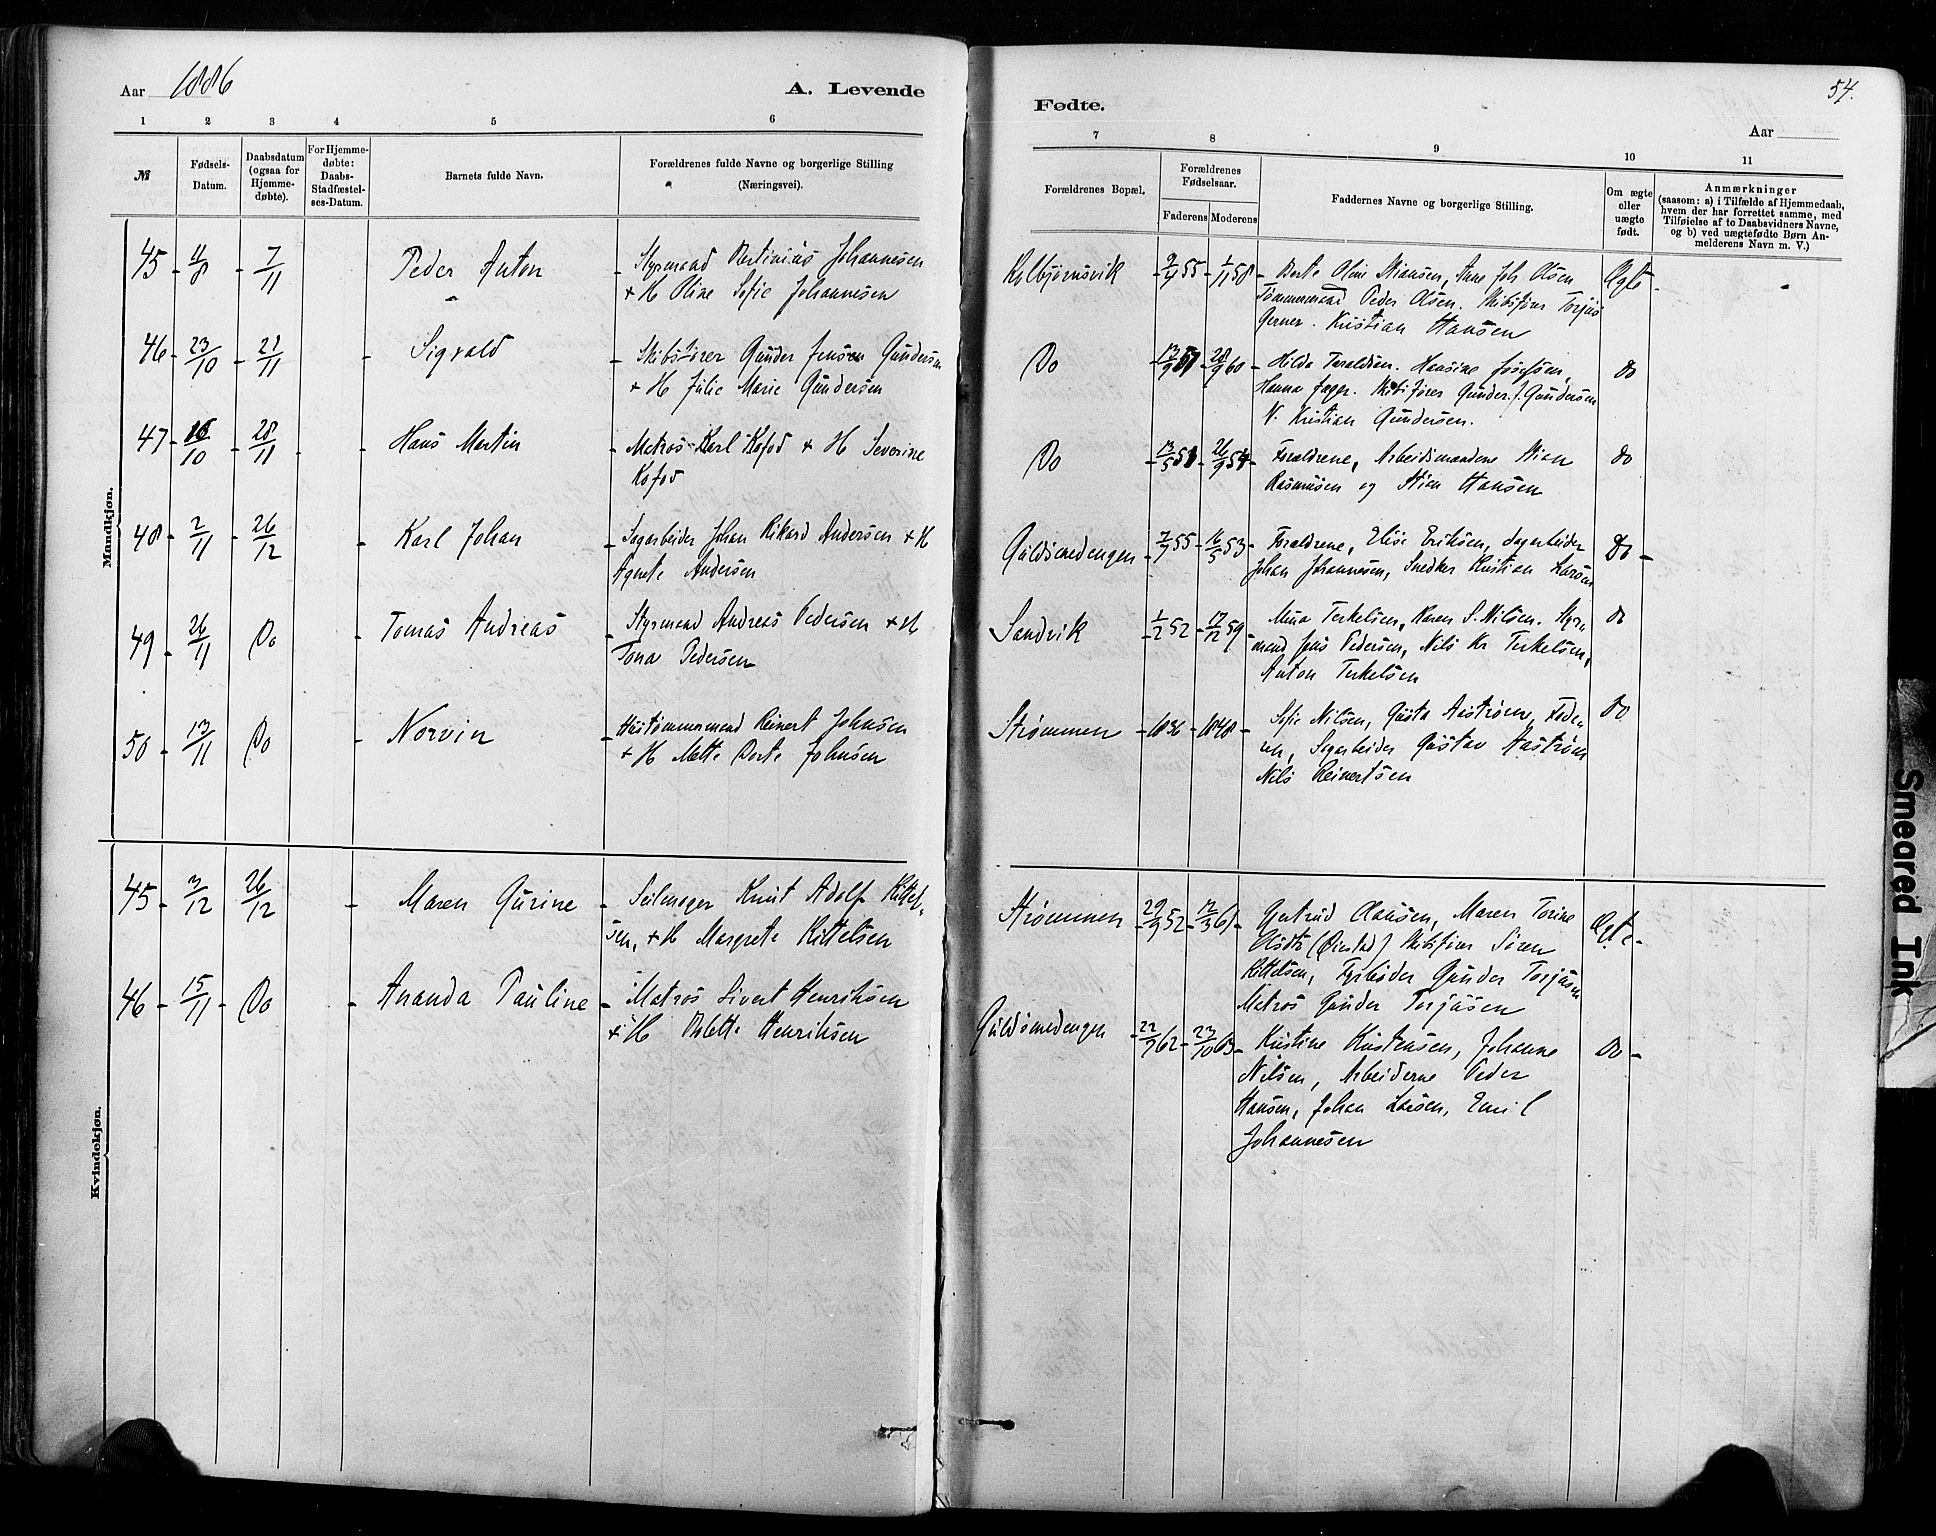 Aar 1886
A. Levende
Fødte.
54.
Aar
1 2 3 4 5 6
7 8 9 10 11
№
Fødsels-
Datum.
Daabsdatum
(ogsaa for
Hjemme-
døbte).
For Hjemme-
døbte:
Daabs-
Stadfæstel-
ses-Datum.
Barnets fulde Navn.
Forældrenes fulde Navne og borgerlige Stilling
(Næringsvei).
Forældrenes Bopæl.
Forældrenes
Fødselsaar.
Faderens Moderens
Faddernes Navne og borgerlige Stilling.
Om ægte
eller
uægte
født.
Anmærkninger
(saasom: a) i Tilfælde af Hjemmedaab,
hvem der har forrettet samme, med
Tilføielse af to Daabsvidners Navne,
og b) ved uægtefødte Børn An-
melderens Navn m. V.)
Mandkjøn.
45 - 11/8 - 7/11 Peder Anton - Styrmand Bertinius Johannesen
+ H Oline Sofie Johannesen
Kolbjørnsvik - 9/4 55 - 1/11 58 - Berte Oline Stiansen, Anne Joh Olsen Ægte -
Tømmermand Peder Olsen. Skibsfører Torjus
Gerner. Kristian Hansen
46 - 23/10 - 21/11 - Sigvald - Skibsfører Gunder Jensen Gundersen
+ H Julie Marie Gundersen
Do - 28/9 60 - Hilda Taraldsen. Hansine Josefsen, do
Hanna Jæger. Skibsfører Gunder J. Gundersen
N. Kristian Gundersen.
47 - 28/11 - Hans Martin - Matros Karl Kofod + H Severine
Kofod
Do - 26/9 54 - Forældrene, Arbeidsmændene Stian do
Rasmussen og Stian Hansen
48 - 2/11 - 26/12 - Karl Johan - Sagarbeider Johan Rikard Andersen + H
Agnete Andersen
Guldsmedengen - 7/7 55 - 16/5 53 - Forældrene, Elise Eriksen, Sagarbeider Do -
Johan Johannesen, Snedker Kristian Larsen
49 - 26/11 Do - Tomas Andreas - Styrmand Andreas Pedersen + H
Tona Pedersen
Sandvik - 1/2 52 - 17/12 59 - Mina Terkelsen, Karen S. Nilsen. Styr- do
mand Jens Pedersen, Nils Kr Terkelsen,
Anton Terkelsen
50 - 13/11 Do - Norvin - Hustømmermand Reinert Johnsen
+ H Mette Dorte Johnsen
Strømmen - 1836 - 1848 - Sofie Nilsen, Gusta Aastrøm, Fader- do
en, Sagarbeider Gustav Aastrøm
Nils Reinertsen
Kvindekjøn.
45 - 3/12 26/12 - Maren Gurine - Seilmager Knut Adolf Kittel-
sen, + H Margrete Kittelsen
Strømmen - 29/9 52 - 12/3 61 - Gertrud Clausen, Maren Torine Ægte -
(Øiestad) Skibsfører Søren
Kittelsen, Fyrbøder Gunder Torjusen
Matros Gunder Torjusen
46 - 15/11 - Do - Ananda Pauline - Matros Sivert Henriksen
+ H Bolette Henriksen
Guldsmedengen - 22/7 62 - 23/10 63 - Kristine Kristensen, Johanne Do -
Nilsen, Arbeiderne Peder
Hansen, Johan Larsen, Emil
Johannesen
Smeared Ink